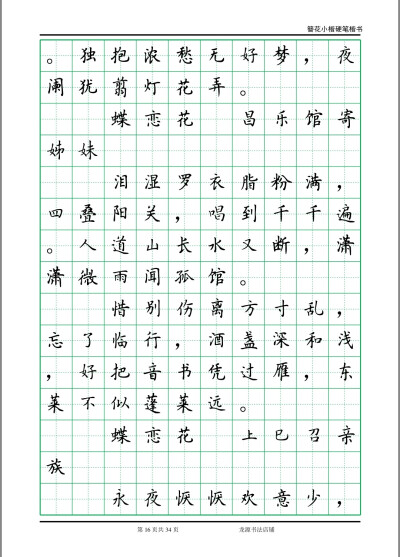 簪花小楷硬笔楷书
。独抱浓愁无好梦，夜
阑犹翦灯花弄。
蝶恋花 昌乐馆寄
姊妹
泪湿罗衣脂粉满，
四叠阳关，唱到千千遍
。人道山长水又断，潇
潇微雨闻孤馆。
惜别伤离方寸乱，
忘了临行，酒盏深和浅
，好把音书凭过雁，东
莱不似蓬莱远。
蝶恋花 上巳召亲
族
永夜恹恹欢意少，
第 16 页共 34 页 龙源书法店铺